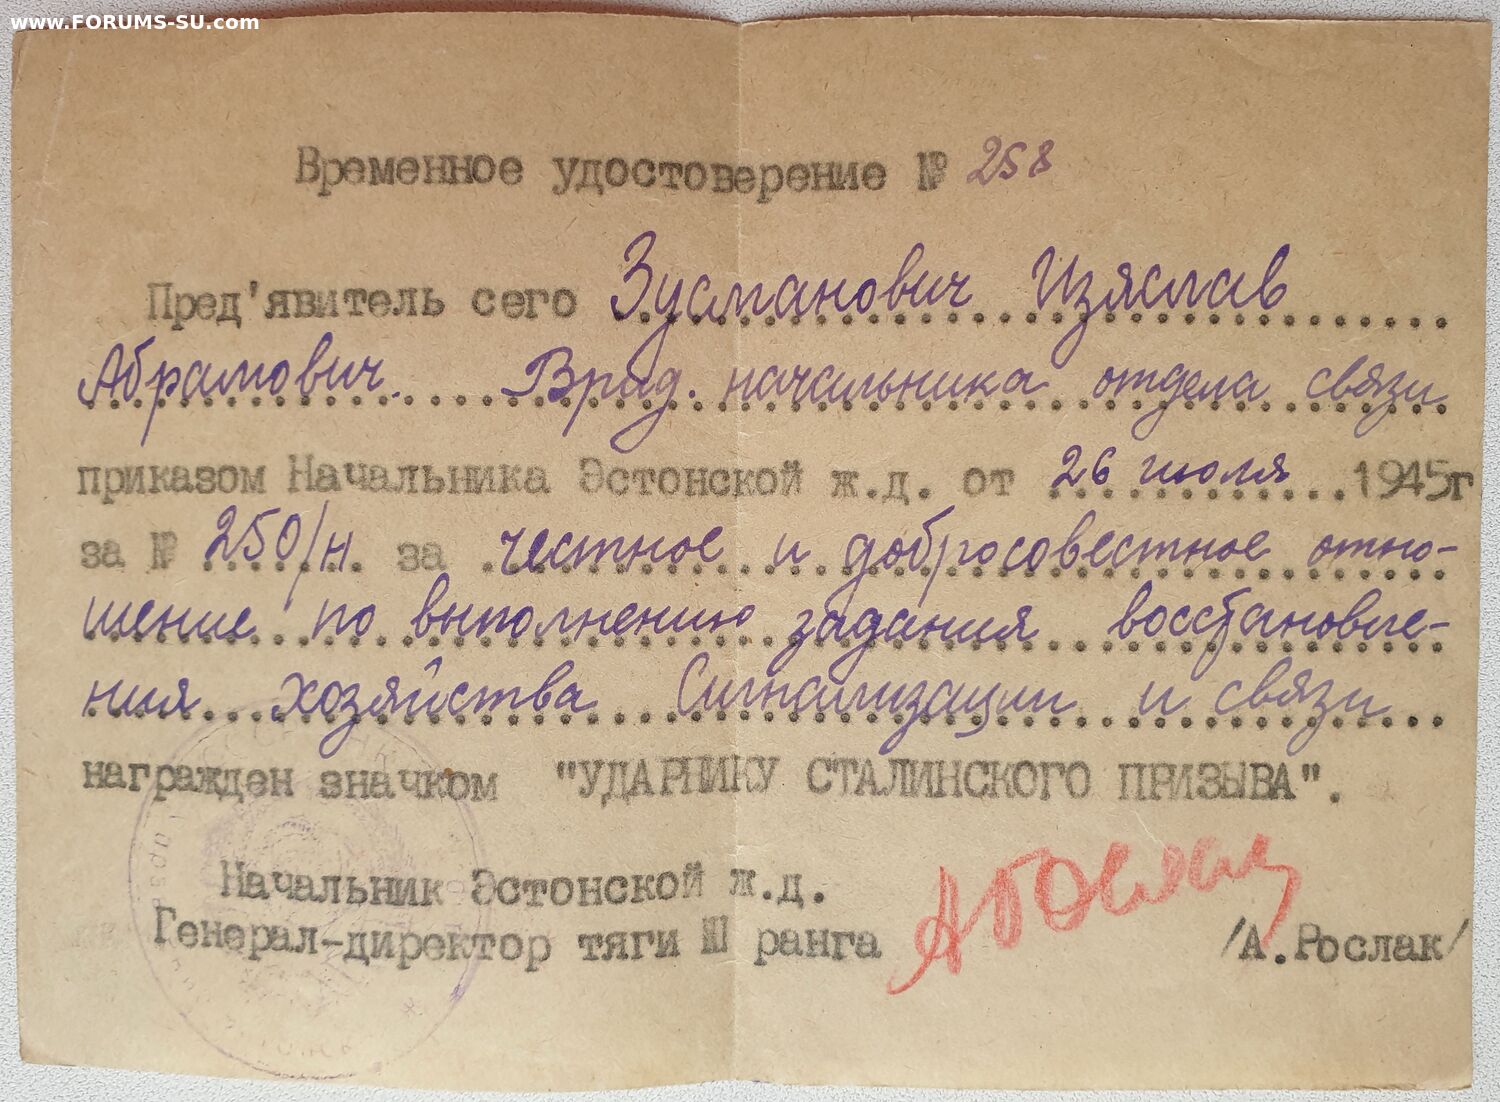 www.FORUMS-SU.com
Временное удостоверение № 258
Пред'явитель сего Зусманович Изяслав
Абрамович. Врид. начальника отдела связи
приказом Начальника Эстонской ж.д. от 26 июля 1945г
за № 250/н. за честное и добросовестное отно-
шение по выполнению задания восстановле-
ния хозяйства Сигнализации и связи
награжден значком "УДАРНИКУ СТАЛИНСКОГО ПРИЗЫВА".
Начальник Эстонской ж.д.
Генерал-директор тяги III ранга /А.Рослак/